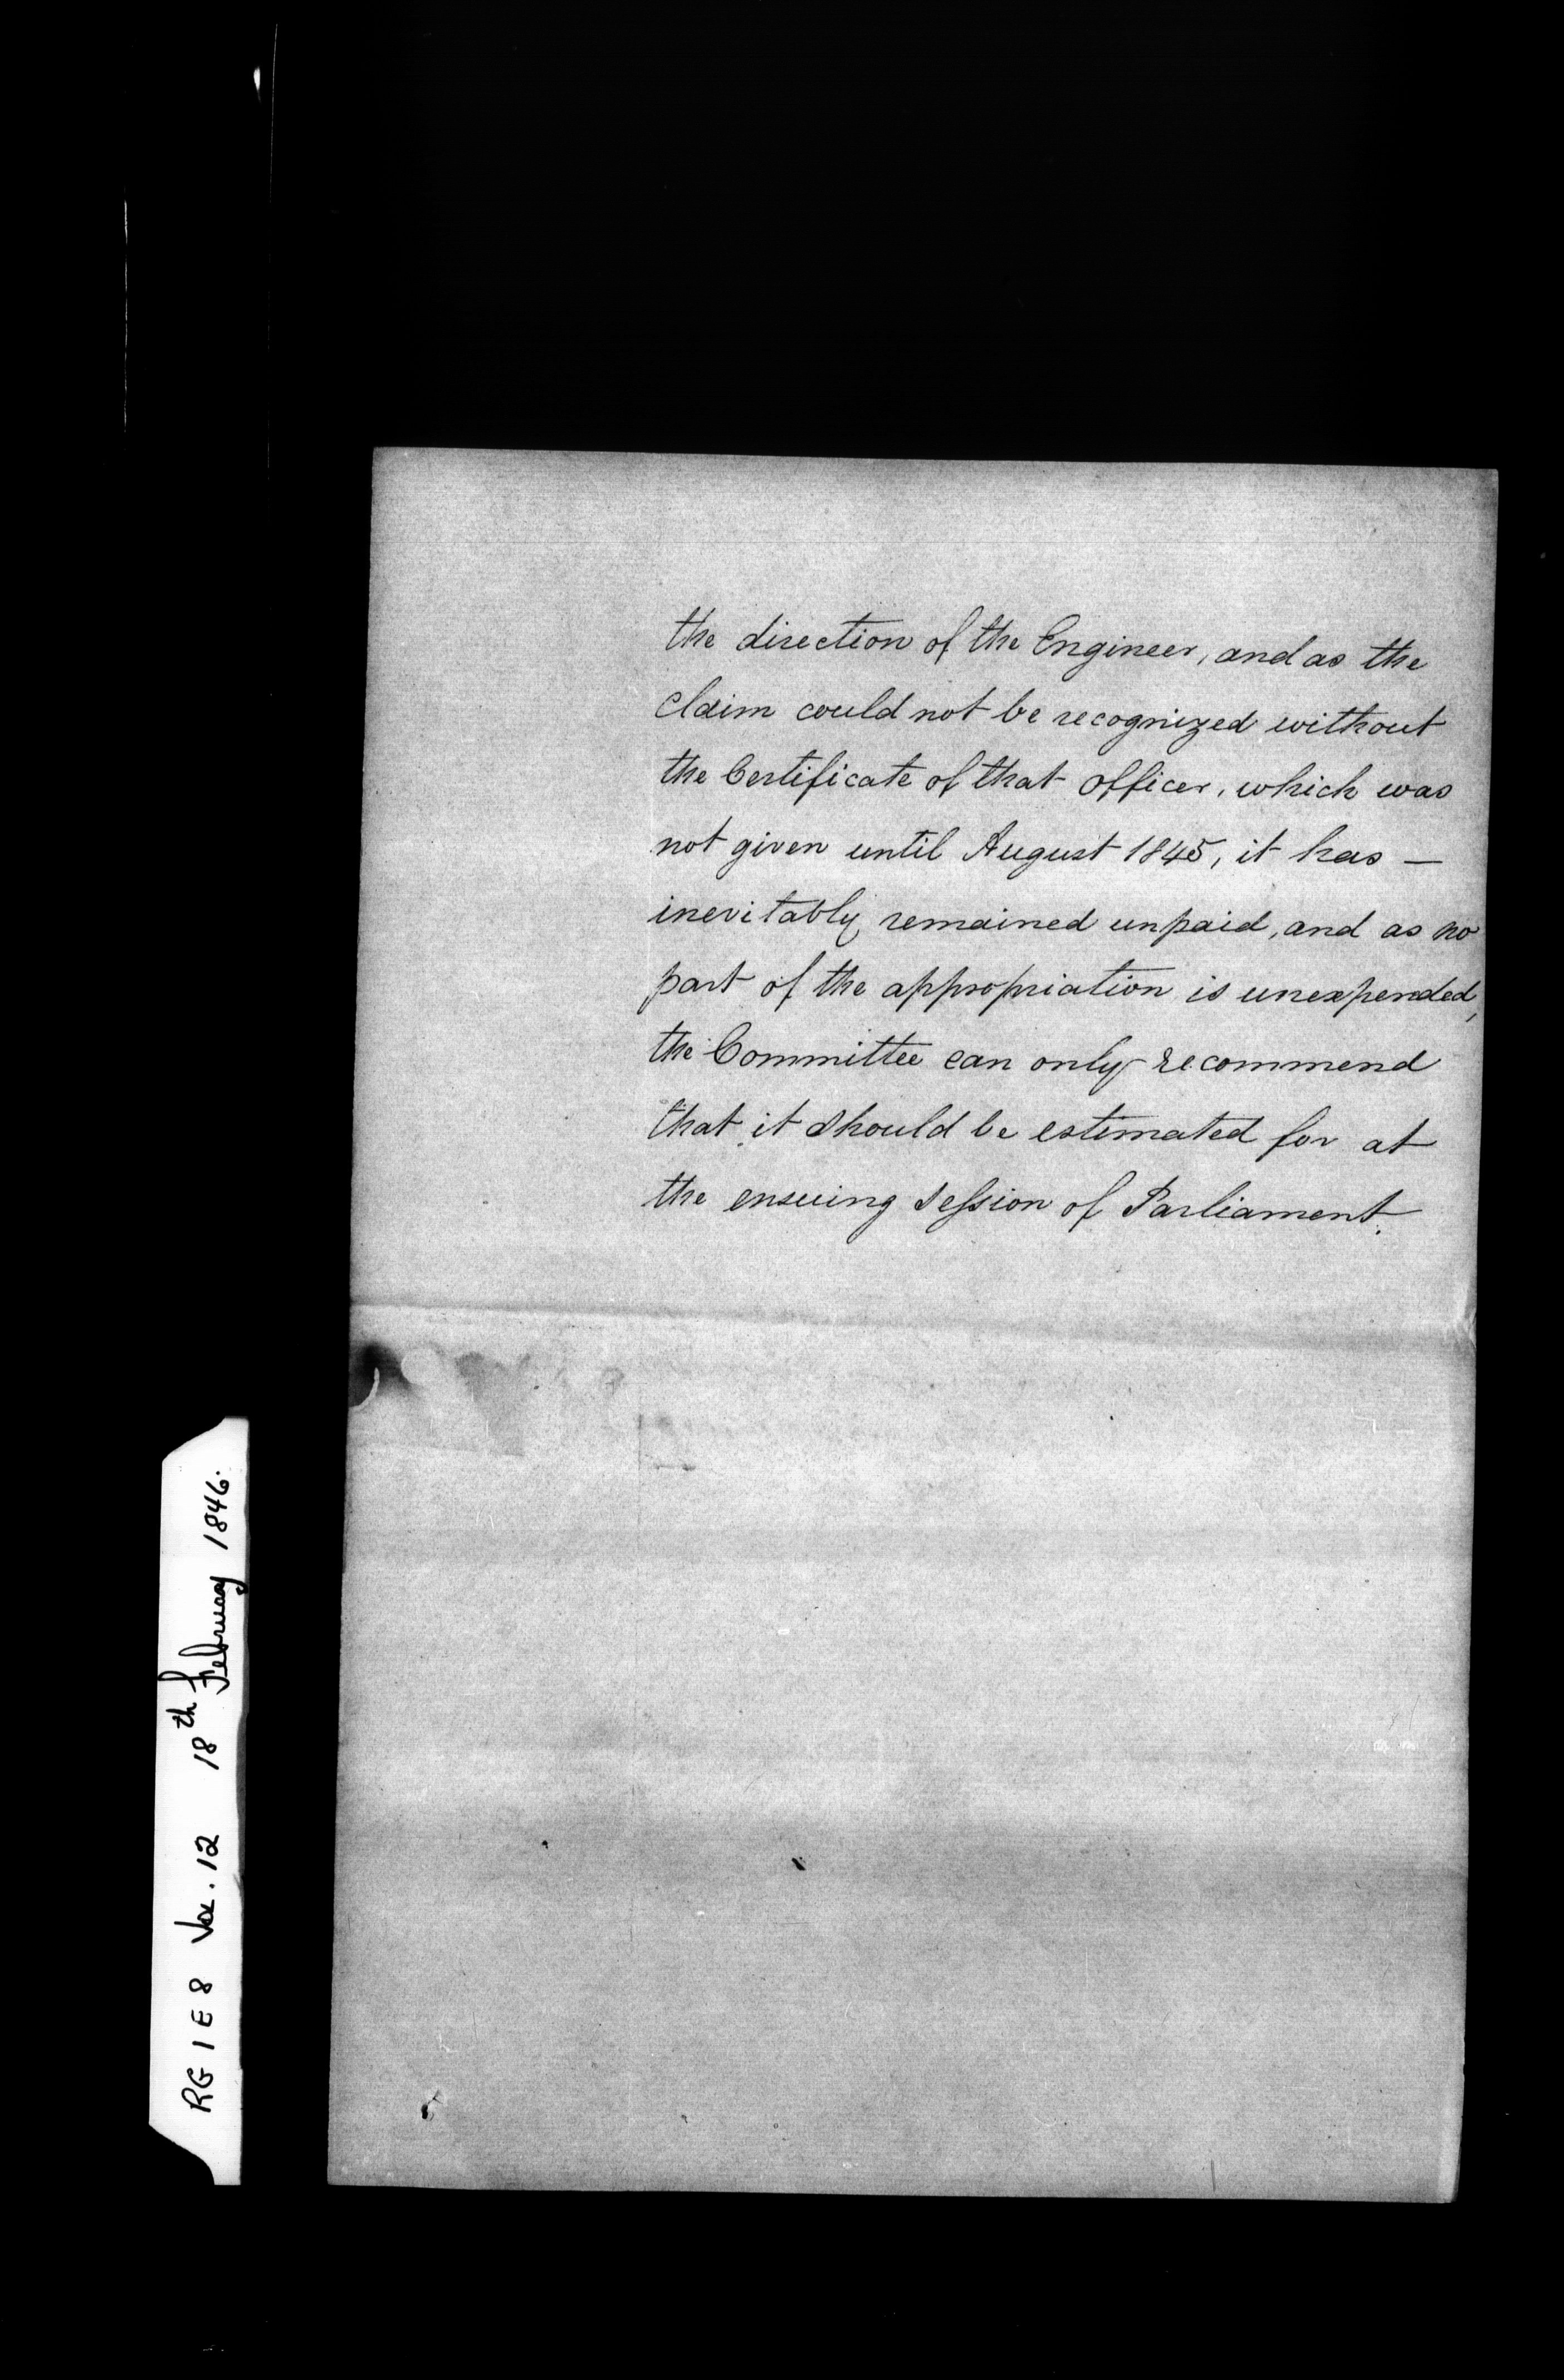 the direction of the Engineer, and as the
claim could not be recognized without
the Certificate of that officer, which was
not given until August 1845, it has —
inevitably remained unpaid, and as no
part of the appropriation is unexpended,
the Committee can only recommend
that it should be estimated for at
the ensuing Session of Parliament.
RG 1 E 8 Vol. 12 18th February 1846.